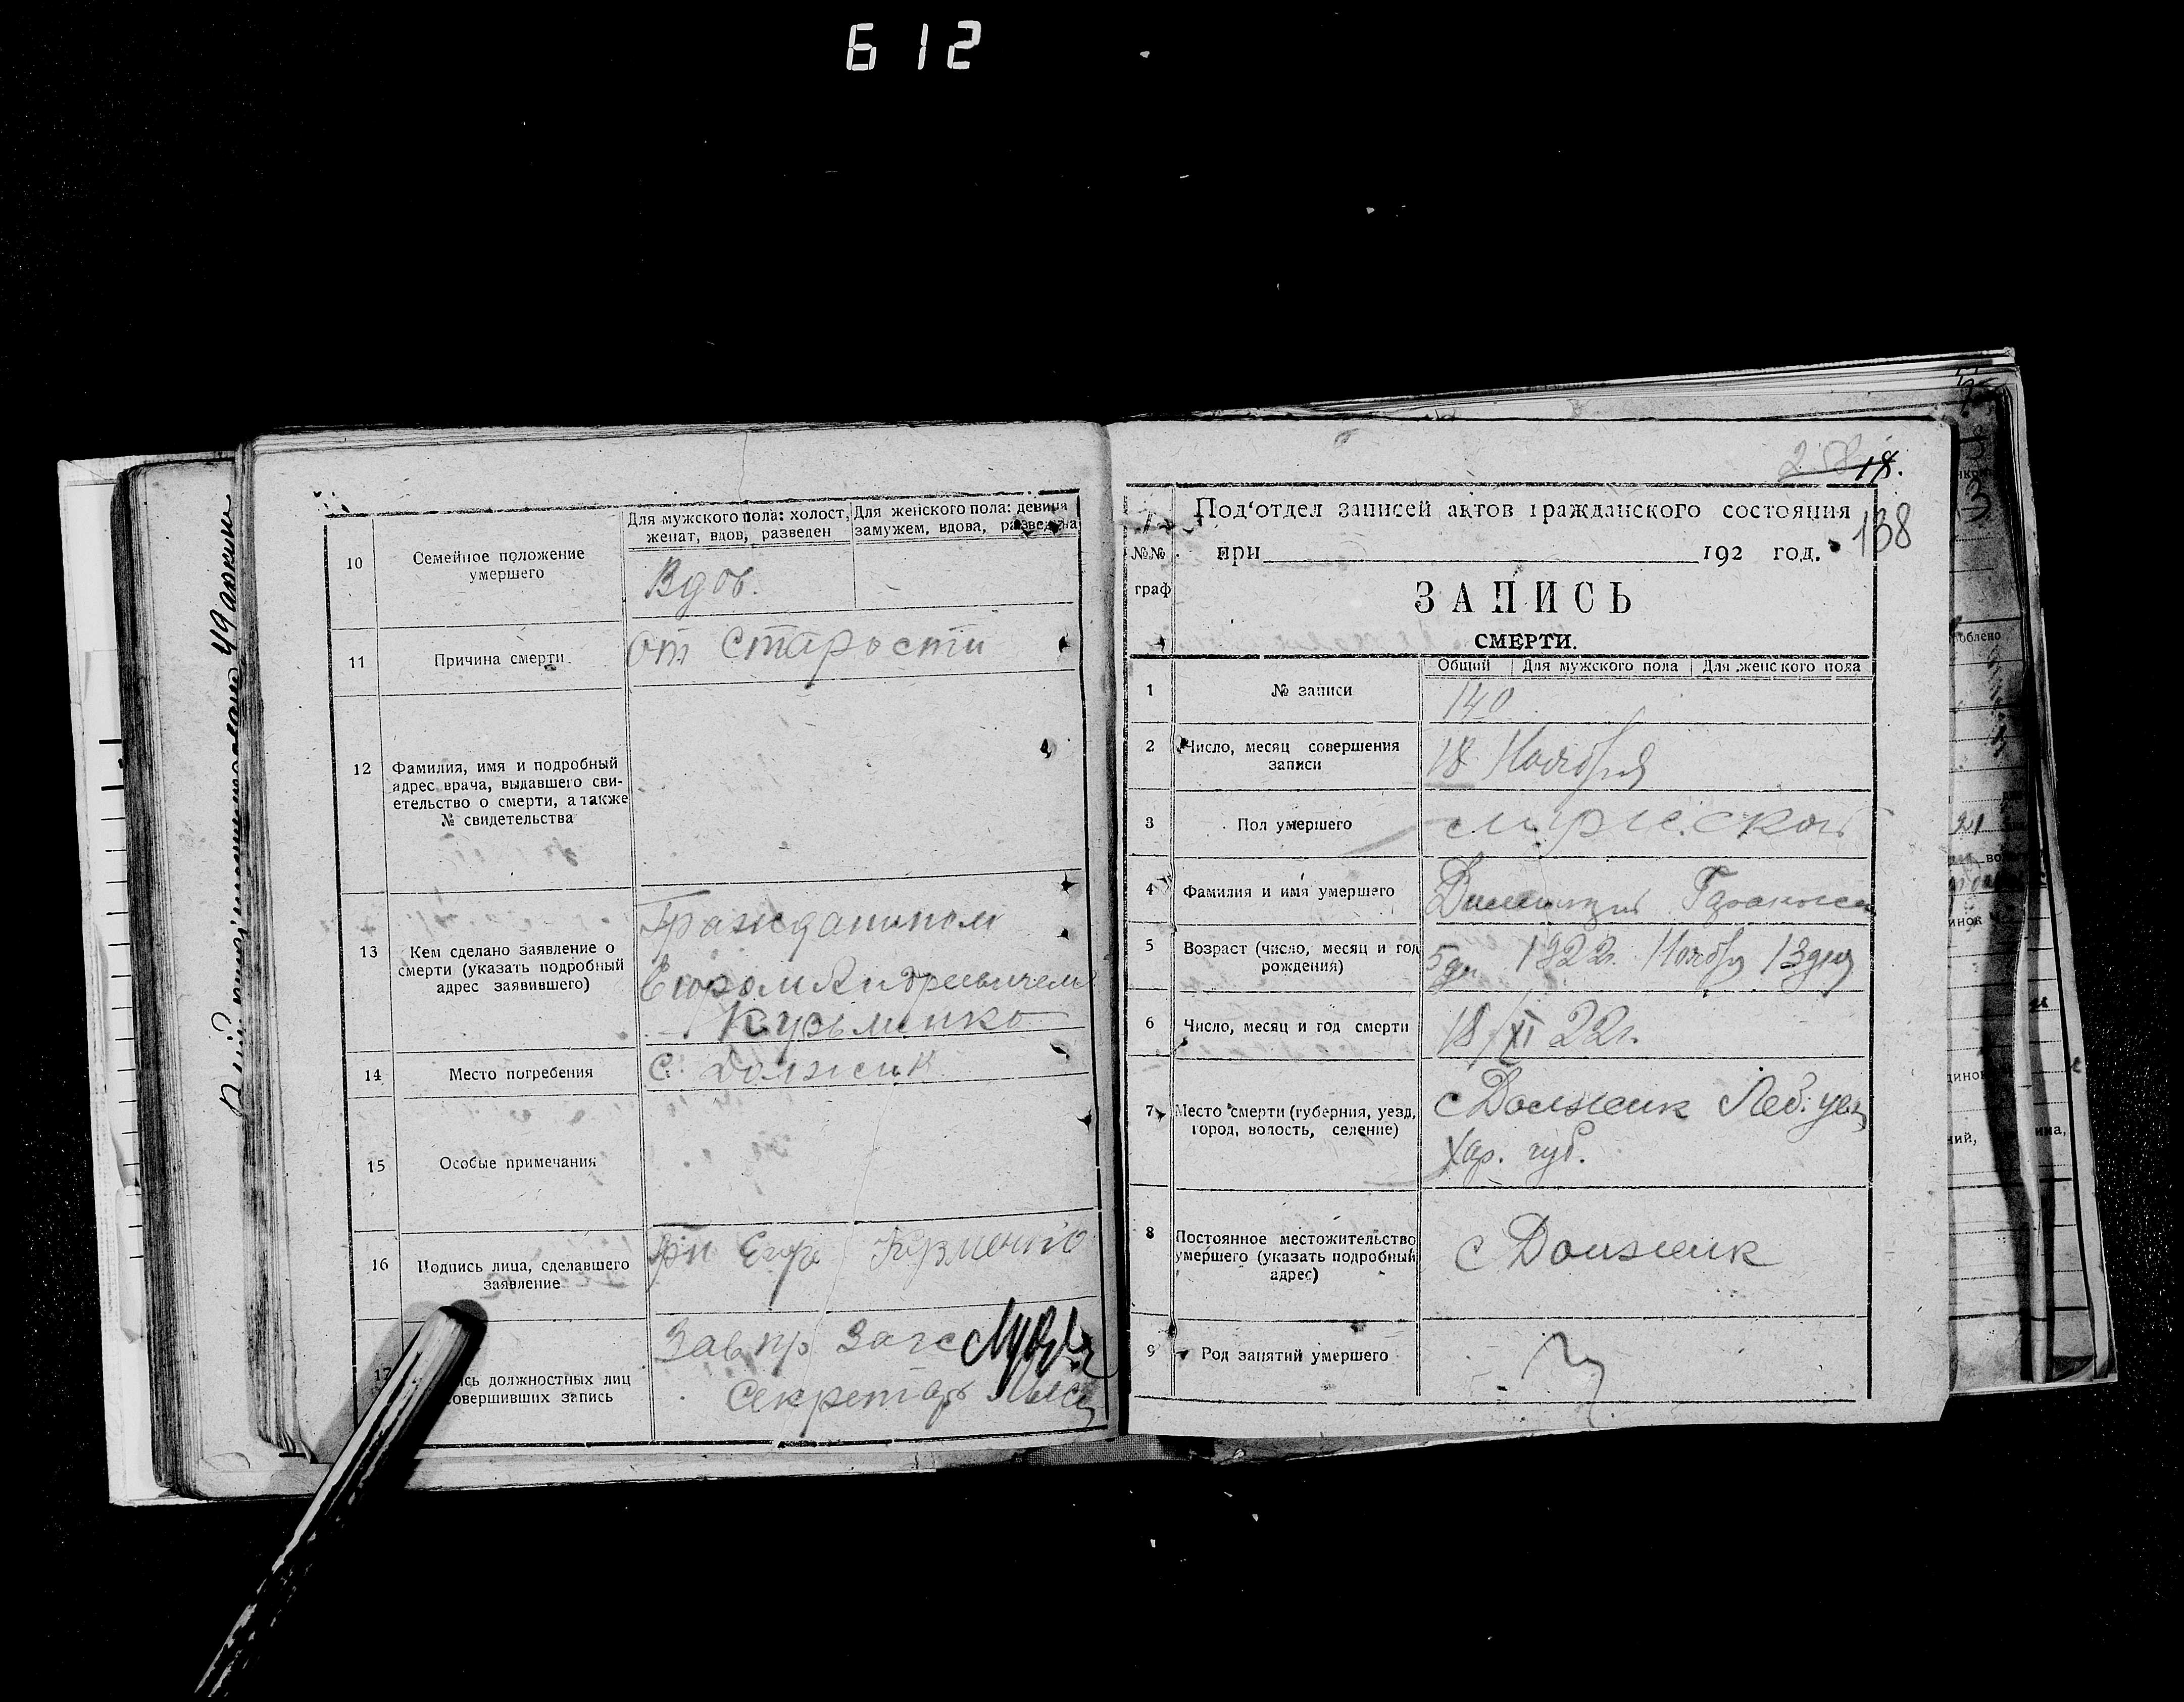 612
10
Семейное положение
умершего
Для мужского пола: холост,
женат, вдов, разведен
Для женского пола: девица
замужем, вдова, разведена
Вдов.
11
Причина смерти
От старости
12
Фамилия, имя и подробный
адрес врача, выдавшего сви-
етельство о смерти, а также
№ свидетельства
13
Кем сделано заявление о
смерти (указать подробный
адрес заявившего)
Гражданином
Егором Андреевичем
Кузьменко
14
Место погребения
с. Должик
15
Особые примечания
16
Подпись лица, сделавшего
заявление
Егор Кузменко
17
сь должностных лиц
овершивших запись
Зав пр Загс
Секретарь
218.
138
№№
граф
Под'отдел записей актов гражданского состояния
при 192 год.
ЗАПИСЬ
СМЕРТИ.
Общий Для мужского пола Для женского пола
1
№ записи
140
2
Число, месяц совершения
записи
18 Ноября
3
Пол умершего
мужской
4
Фамилия и имя умершего
5
Возраст (число, месяц и год
рождения)
5 дн. 1922г. Ноября 13 дня
6
Число, месяц и год смерти
18/XI 22г.
7
Место смерти (губерния, уезд,
город, волость, селение)
с Должик Леб. уез
Хар. губ.
8
Постоянное местожительство
умершего (указать подробный
адрес)
с Должик
9
Род занятий умершего